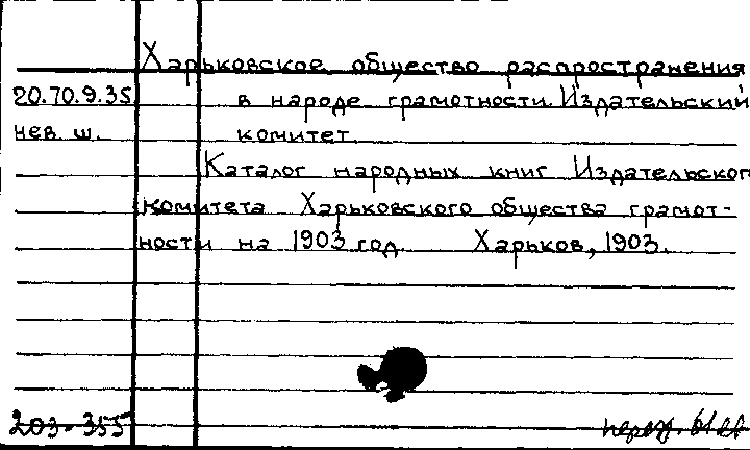 Харьковское общество распространения
20.70.9.35 в народе грамотности. Издательский
нев. ш. комитет
Каталог народных книг Издательског
комитета Харьковского общества грамот-
ности на 1903 год. Харьков, 1903.
203-355